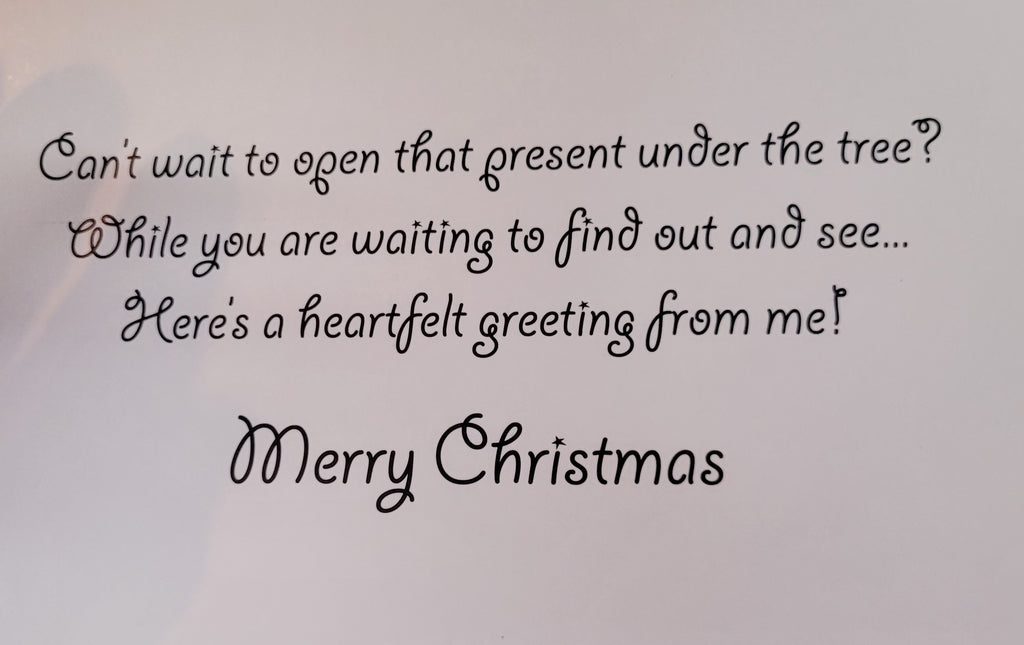 Can't wait to open that present under the tree?
While you are waiting to find out and see...
Here's a heartfelt greeting from me!
Merry Christmas